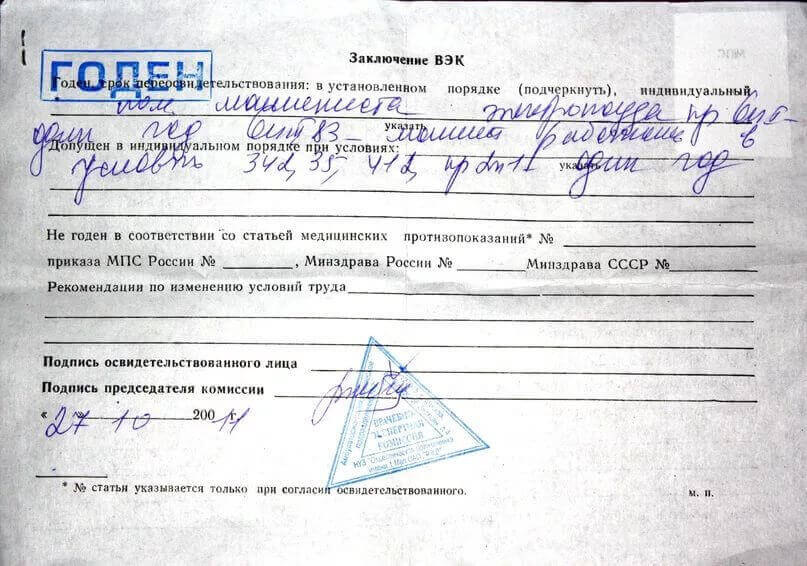 МПС
Заключение ВЭК
ГОДЕН
Годен, срок переосвидетельствования: в установленном порядке (подчеркнуть), индивидуальный
пом машиниста электропоезда пр
указать
один год 83- работать в
Допущен в индивидуальном порядке при условиях:
условиях 34 2, 35, 41 2, один год
указать
Не годен в соответствии со статьей медицинских противопоказаний* №
приказа МПС России № , Минздрава России № Минздрава СССР №
Рекомендации по изменению условий труда
Подпись освидетельствованного лица
Подпись председателя комиссии
« 27 » 10 200 11 г.
ВРАЧЕБНО-
ЭКСПЕРТНАЯ
КОМИССИЯ
* № статьи указывается только при согласии освидетельствованного.
м. п.